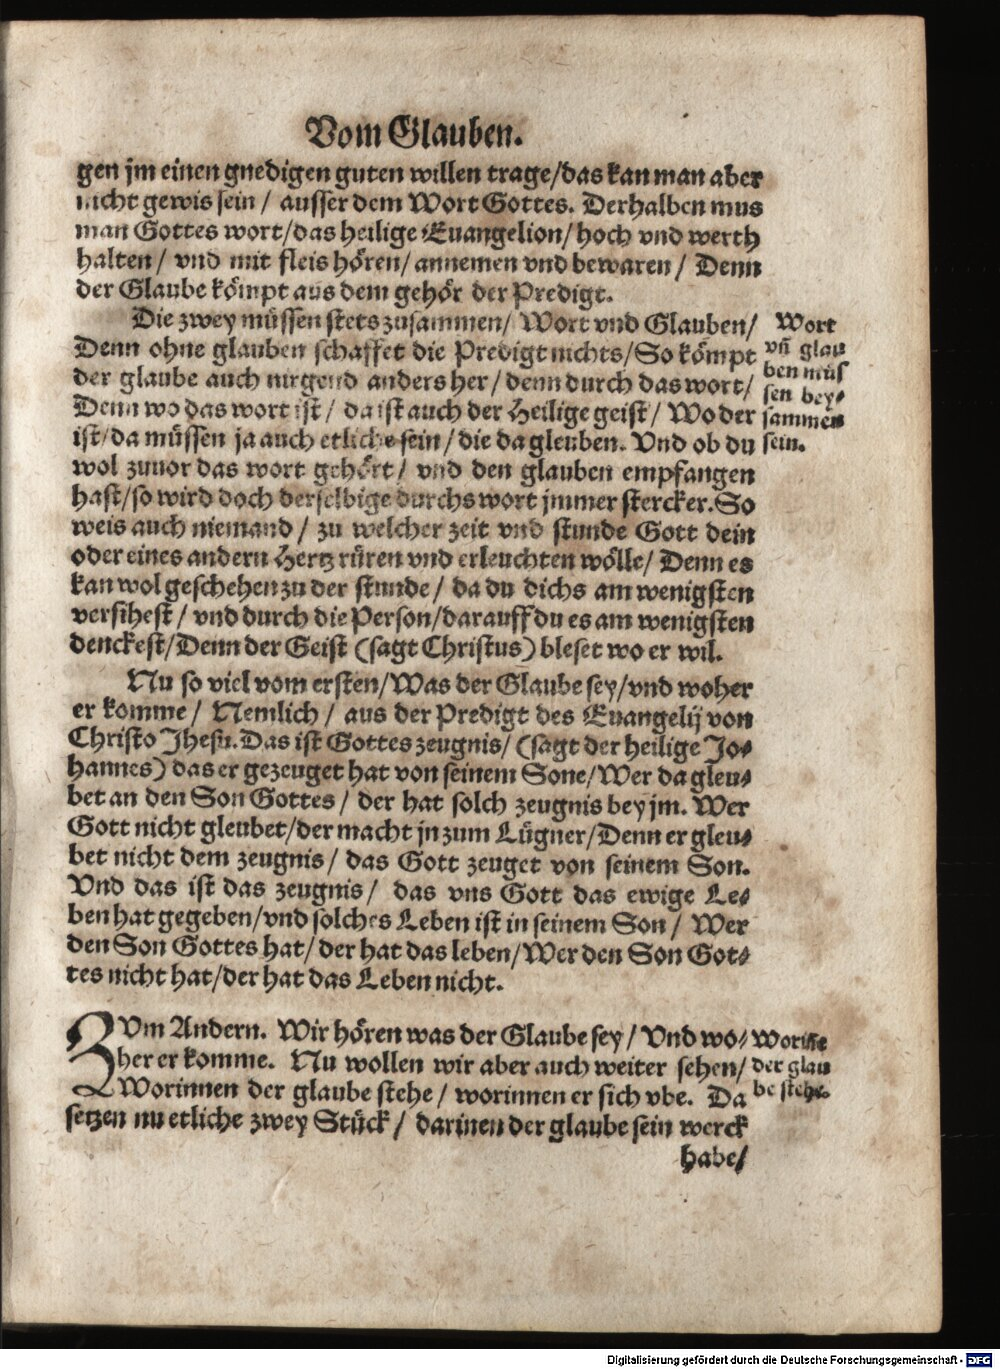 Vom Glauben.
gen jm einen gnedigen guten willen trage/das kan man aber
nicht gewis sein/ ausser dem Wort Gottes. Derhalben mus
man Gottes wort/das heilige Euangelion/hoch vnd werth
halten/ vnd mit fleis hören/annemen vnd bewaren/ Denn
der Glaube kömpt aus dem gehör der Predigt.
Die zwey müssen stets zusammen/ Wort vnd Glauben/
Denn ohne glauben schaffet die Predigt nichts/So kömpt
der glaube auch nirgend anders her/denn durch das wort/
Denn wo das wort ist/ da ist auch der Heilige geist/ Wo der
ist/da müssen ja auch etliche sein/die da gleuben. Vnd ob du
wol zuuor das wort gehört/ vnd den glauben empfangen
hast/so wird doch derselbige durchs wort jmmer stercker. So
weis auch niemand/ zu welcher zeit vnd stunde Gott dein
oder eines andern Hertz rüren vnd erleuchten wölle/ Denn es
kan wol geschehen zu der stunde/ da du dichs am wenigsten
versihest/ vnd durch die Person/darauff du es am wenigsten
denckest/Denn der Geist (sagt Christus) bleset wo er wil.
Wort
vñ glau
ben müs
sen bey⸗
sammen
sein.
Nu so viel vom ersten/Was der Glaube sey/vnd woher
er komme/ Nemlich/ aus der Predigt des Euangelij von
Christo Jhesu. Das ist Gottes zeugnis/ (sagt der heilige Jo⸗
hannes) das er gezeuget hat von seinem Sone/Wer da gleu⸗
bet an den Son Gottes/ der hat solch zeugnis bey jm. Wer
Gott nicht gleubet/der macht jn zum Lügner/Denn er gleu⸗
bet nicht dem zeugnis/ das Gott zeuget von seinem Son.
Vnd das ist das zeugnis/ das vns Gott das ewige Le⸗
ben hat gegeben/vnd solches Leben ist in seinem Son/ Wer
den Son Gottes hat/der hat das leben/Wer den Son Got⸗
tes nicht hat/der hat das Leben nicht.
ZVm Andern. Wir hören was der Glaube sey/ Vnd wo⸗
her er komme. Nu wollen wir aber auch weiter sehen/
Worinnen der glaube stehe/ worinnen er sich vbe. Da
setzen nu etliche zwey Stück/ darinen der glaube sein werck
der glau
be stehe.
habe/
Digitalisierung gefördert durch die Deutsche Forschungsgemeinschaft - DFG